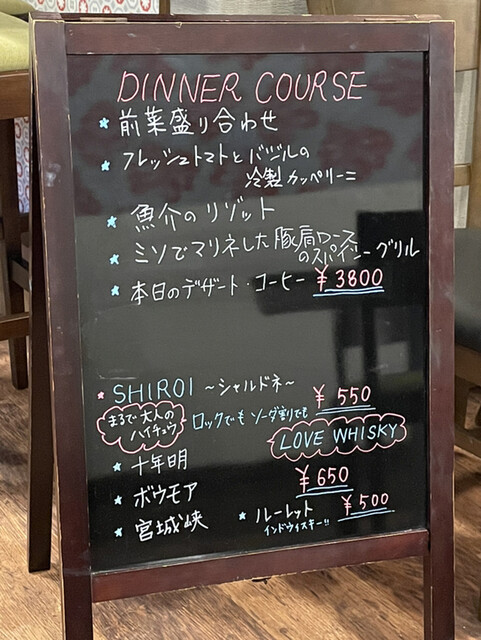 DINNER COURSE
★ 前菜盛り合わせ
★ フレッシュトマトとバジルの
冷製カッペリーニ
★ 魚介のリゾット
★ ミソでマリネした豚肩ロース
のスパイシーグリル
★ 本日のデザート・コーヒー ¥3800
★ SHIROI ~シャルドネ~ ¥550
まるで大人の
ハイチュウ
ロックでもソーダ割りでも
LOVE WHISKY
★ 十年明
¥650
★ ボウモア
★ 宮城峡
★ ルーレット ¥500
インドウィスキー!!